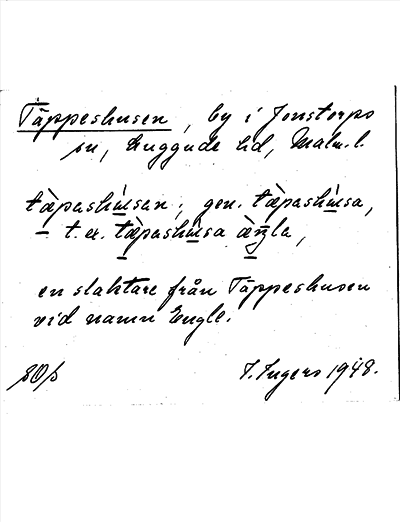 Täppeshusen, by i Jonstorps
sn, Luggude hd, Malm. l.
tæ̀pashúsan; gen. tæ̀pashúsa,
t. ex. tæ̀pashúsa æ̀ŋla,
en slaktare från Täppeshusen
vid namn Engle.
I. Ingers 1948.